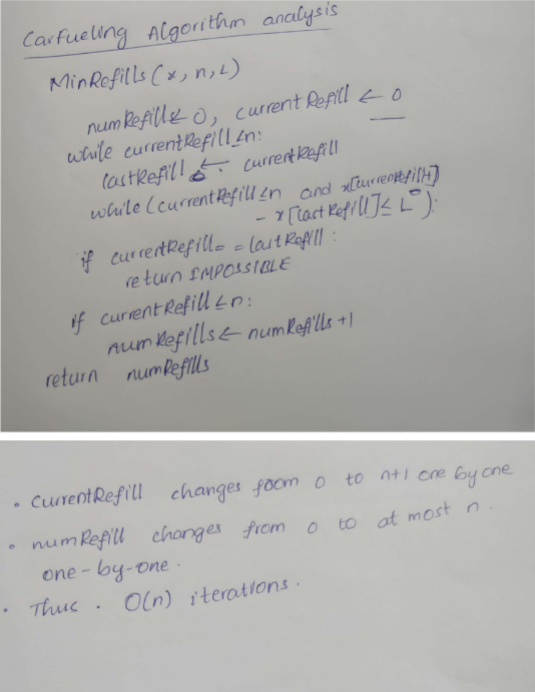 Car Fueling Algorithm analysis
MinRefills (x, n, L)
numRefill ← 0, currentRefill ← 0
while currentRefill ≤ n:
lastRefill ← currentRefill
while (currentRefill ≤ n and x[currentRefill+1]
- x[lastRefill] ≤ L):
if currentRefill = = lastRefill :
return IMPOSSIBLE
if currentRefill ≤ n:
numRefills ← numRefills +1
return numRefills
• CurrentRefill changes from 0 to n+1 one by one
• numRefill changes from 0 to at most n.
one-by-one.
• Thus . O(n) iterations.